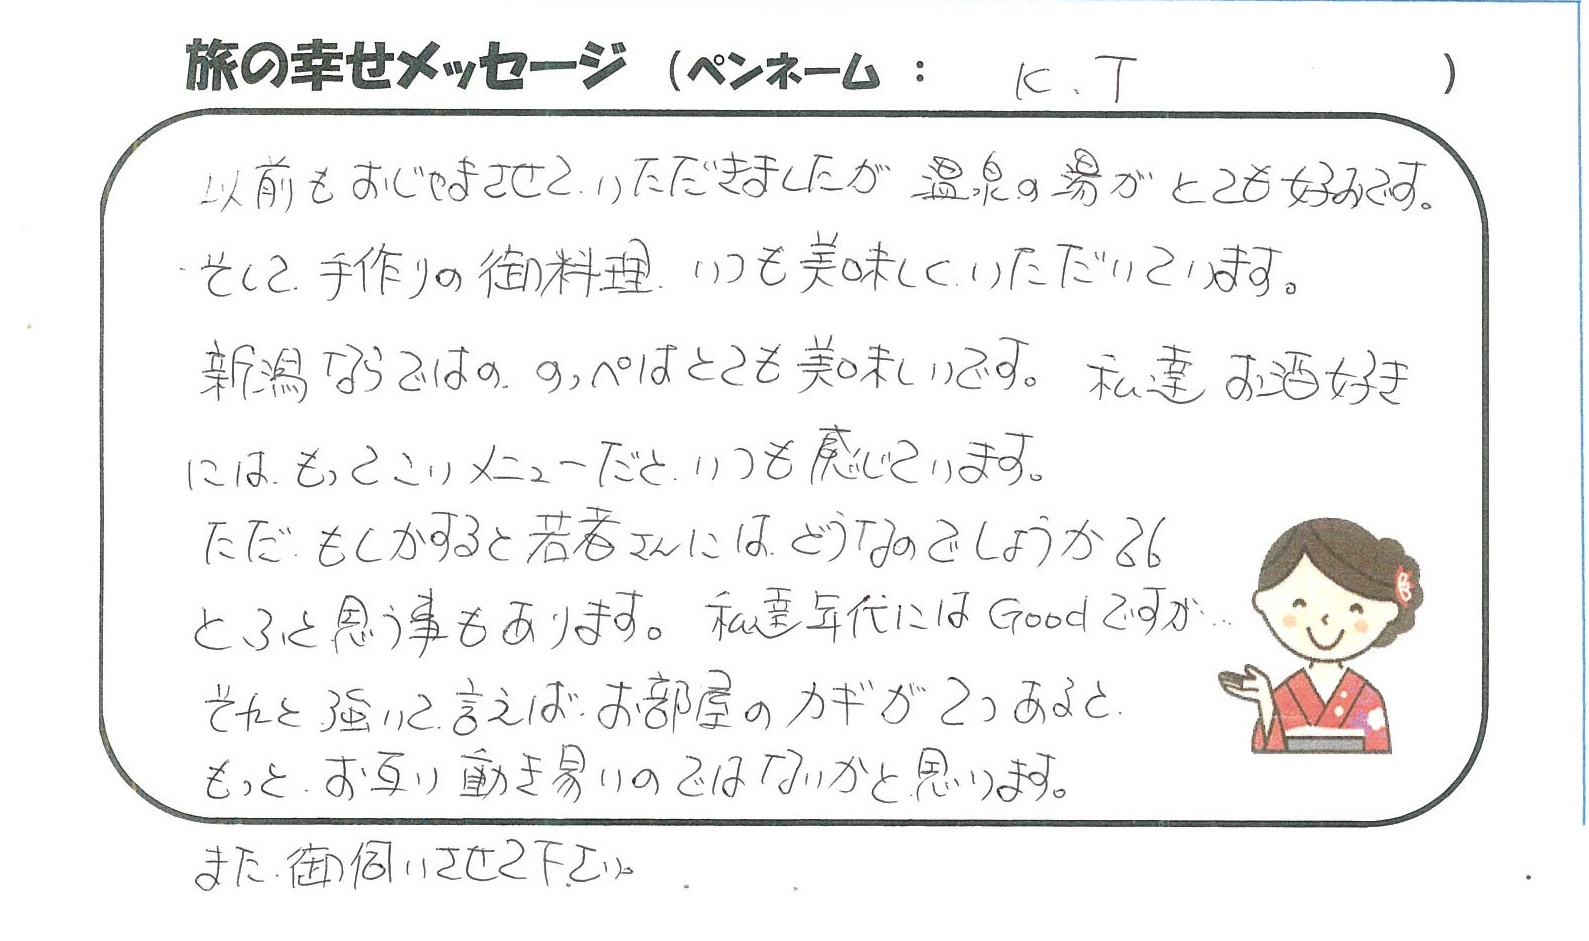 旅の幸せメッセージ (ペンネーム : K.T )
以前もおじゃまさせていただきましたが 温泉の湯がとても好みです。
そして 手作りの御料理 いつも美味しくいただいています。
新潟ならではの のっぺはとても美味しいです。 私達 お酒好き
には もってこいメニューだと いつも感じています。
ただ もしかすると若者さんには どうなのでしょうか
とふと思う事もあります。 私達年代にはGoodですが…
それと強いて言えば お部屋のカギが2つあると
もっと お互い動き易いのではないかと思います。
また 御伺いさせて下さい。